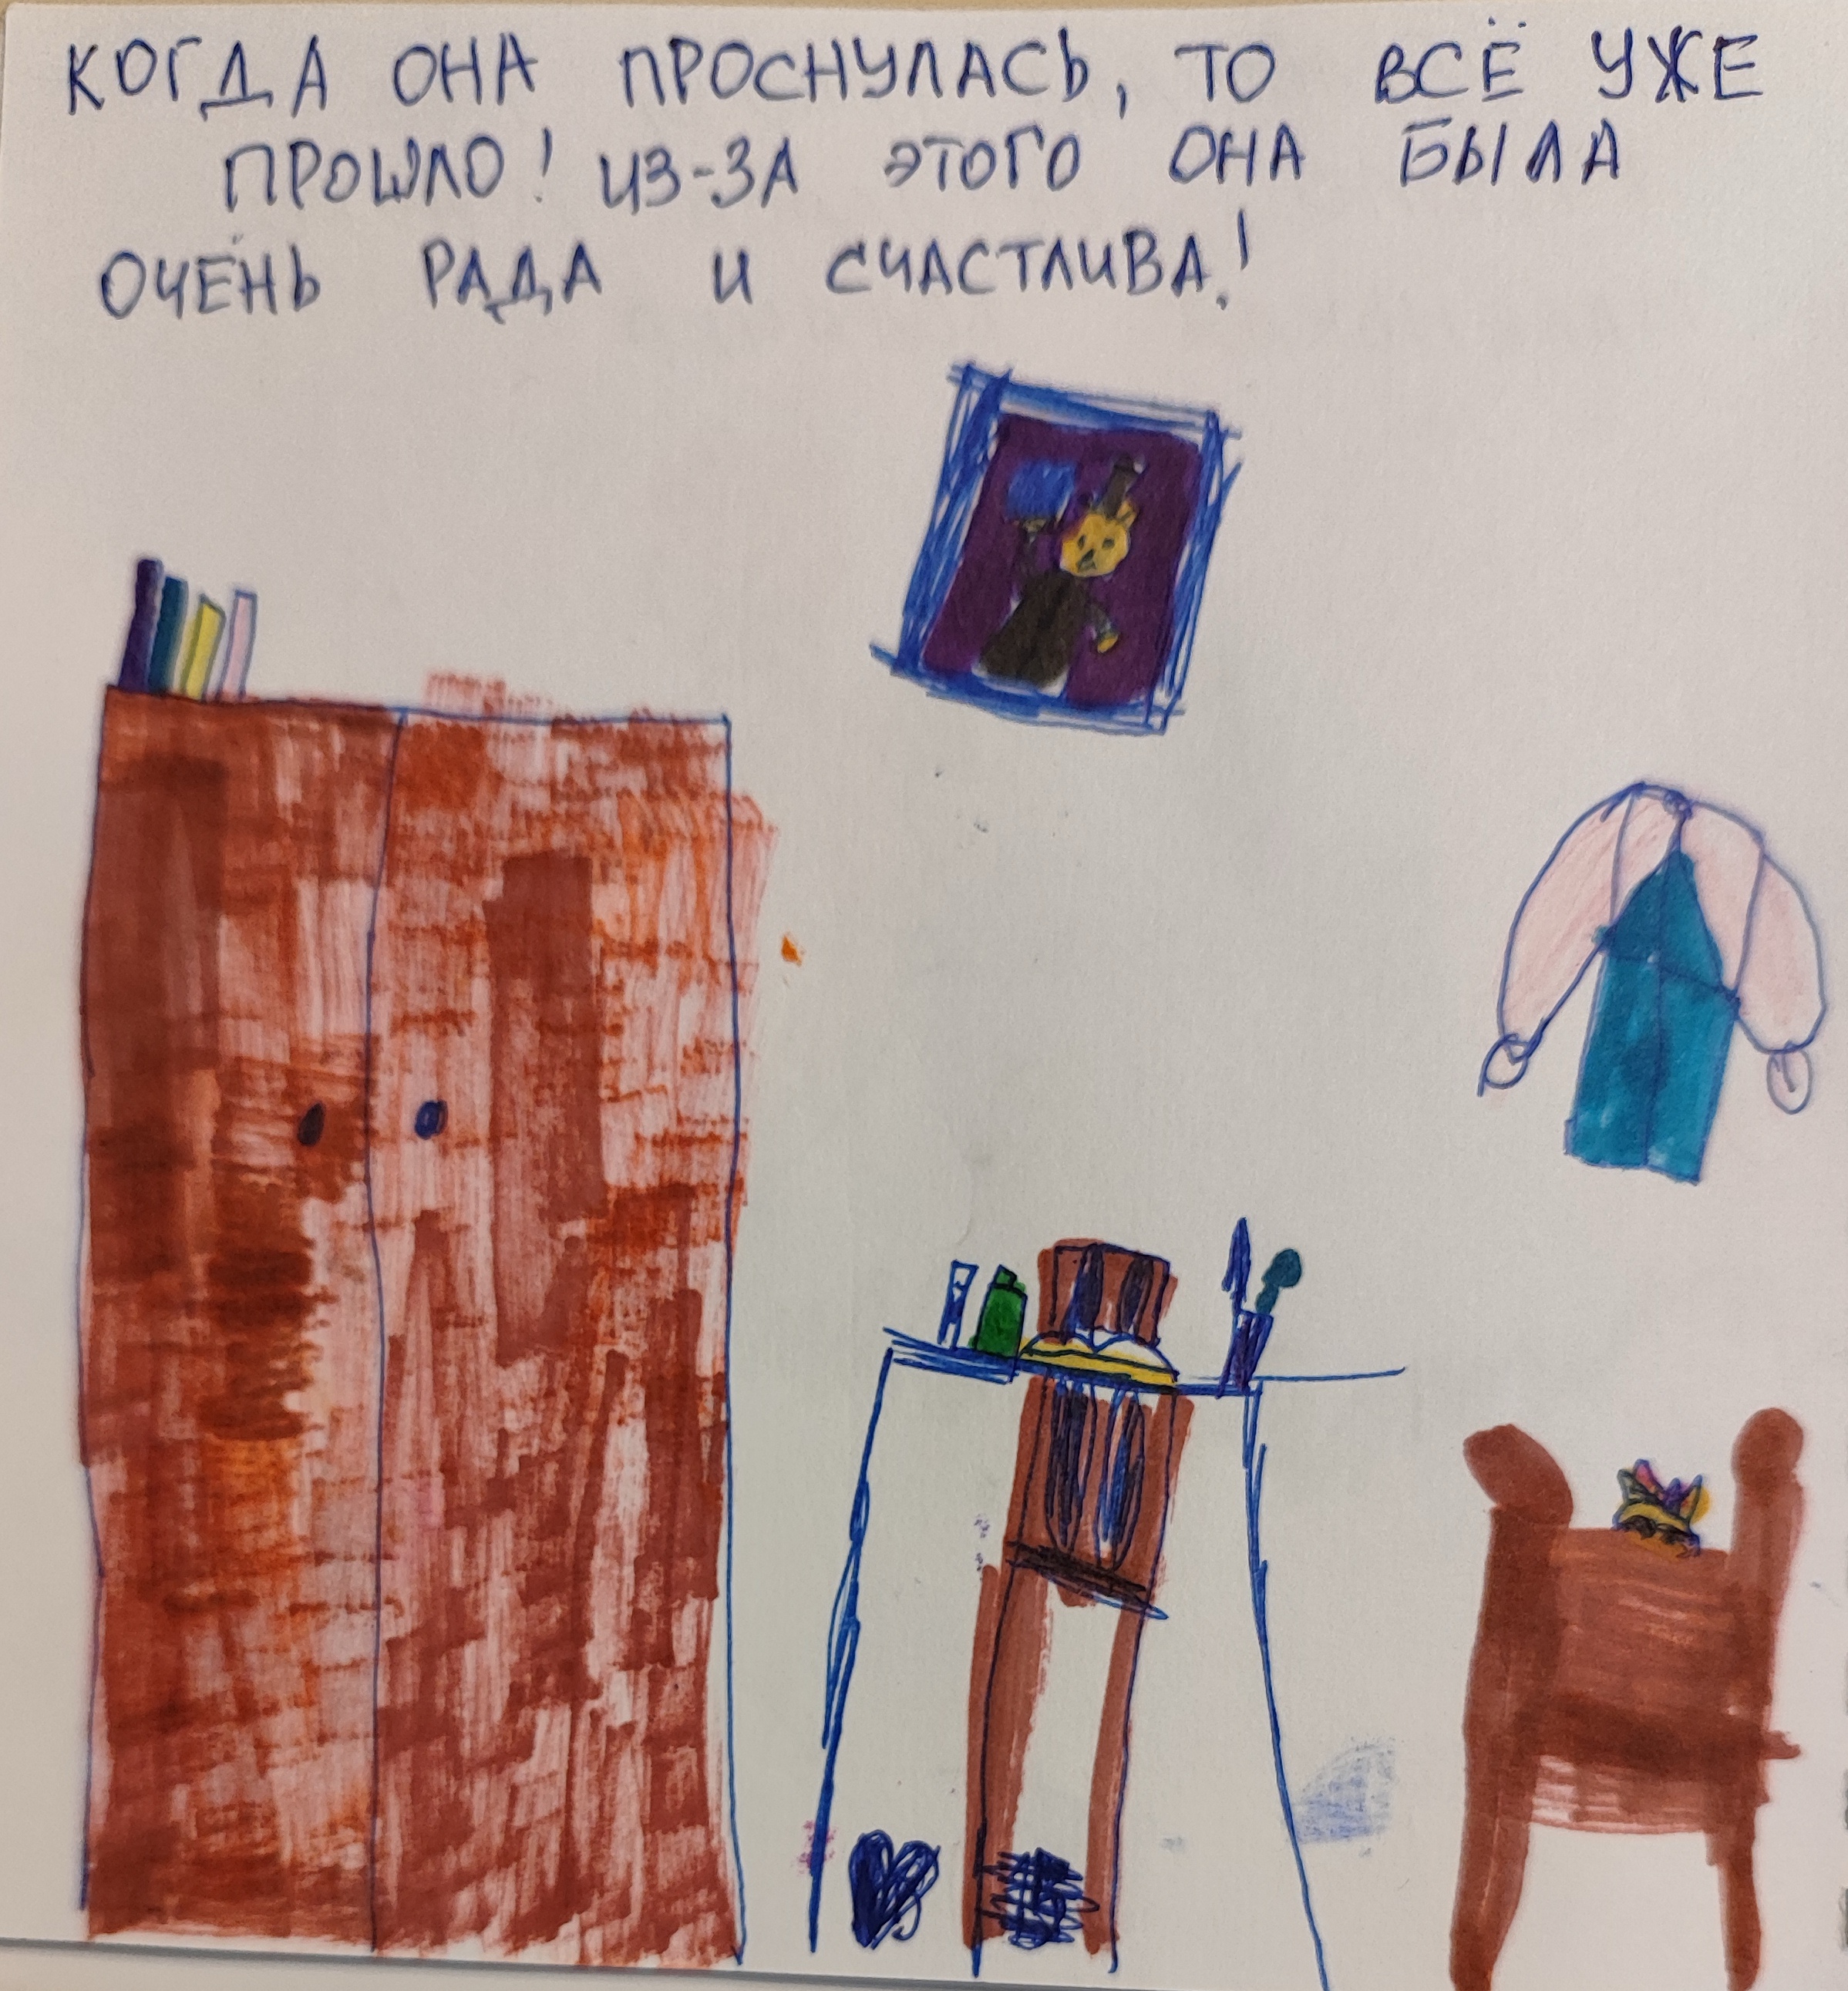 КОГДА ОНА ПРОСНУЛАСЬ, ТО ВСЁ УЖЕ
ПРОШЛО! ИЗ-ЗА ЭТОГО ОНА БЫЛА
ОЧЕНЬ РАДА И СЧАСТЛИВА!